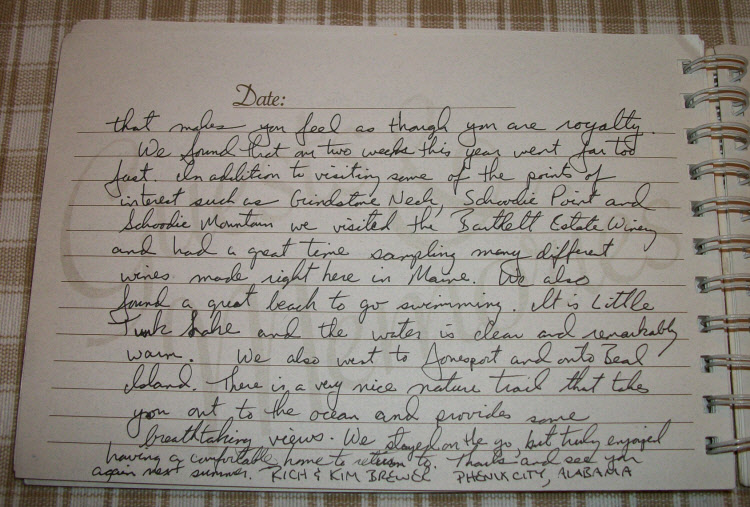 Date:
that makes you feel as though you are royalty.
We found that our two weeks this year went far too
fast. In addition to visiting some of the points of
interest such as Grindstone Neck, Schoodic Point and
Schoodic Mountain we visited the Bartlett Estate Winery
and had a great time sampling many different
wines made right here in Maine. We also
found a great beach to go swimming. It is Little
Tunk Lake and the water is clear and remarkably
warm. We also went to Jonesport and onto Beal
Island. There is a very nice nature trail that takes
you out to the ocean and provides some
breathtaking views. We stayed on the go, but truly enjoyed
having a comfortable home to return to. Thanks and see you
again next summer. RICH & KIM BREWER PHENIX CITY, ALABAMA